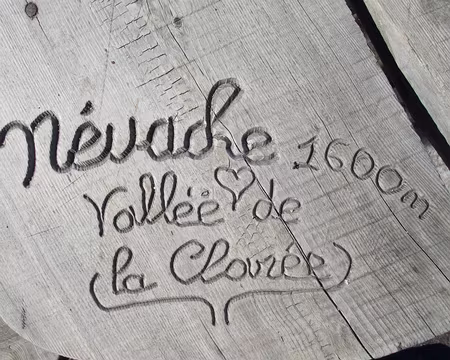 Névache 1600m
Vallée ♡ de
(la Clarée)